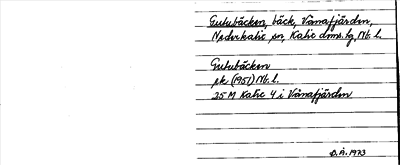 Gutubäcken, bäck, Vånafjärden,
Nederkalix sn, Kalix dms. lg, Nb. l.
Gutubäcken
pk (1951) Nb. l.
25 M Kalix 4 i Vånafjärden
D.Å. 1973